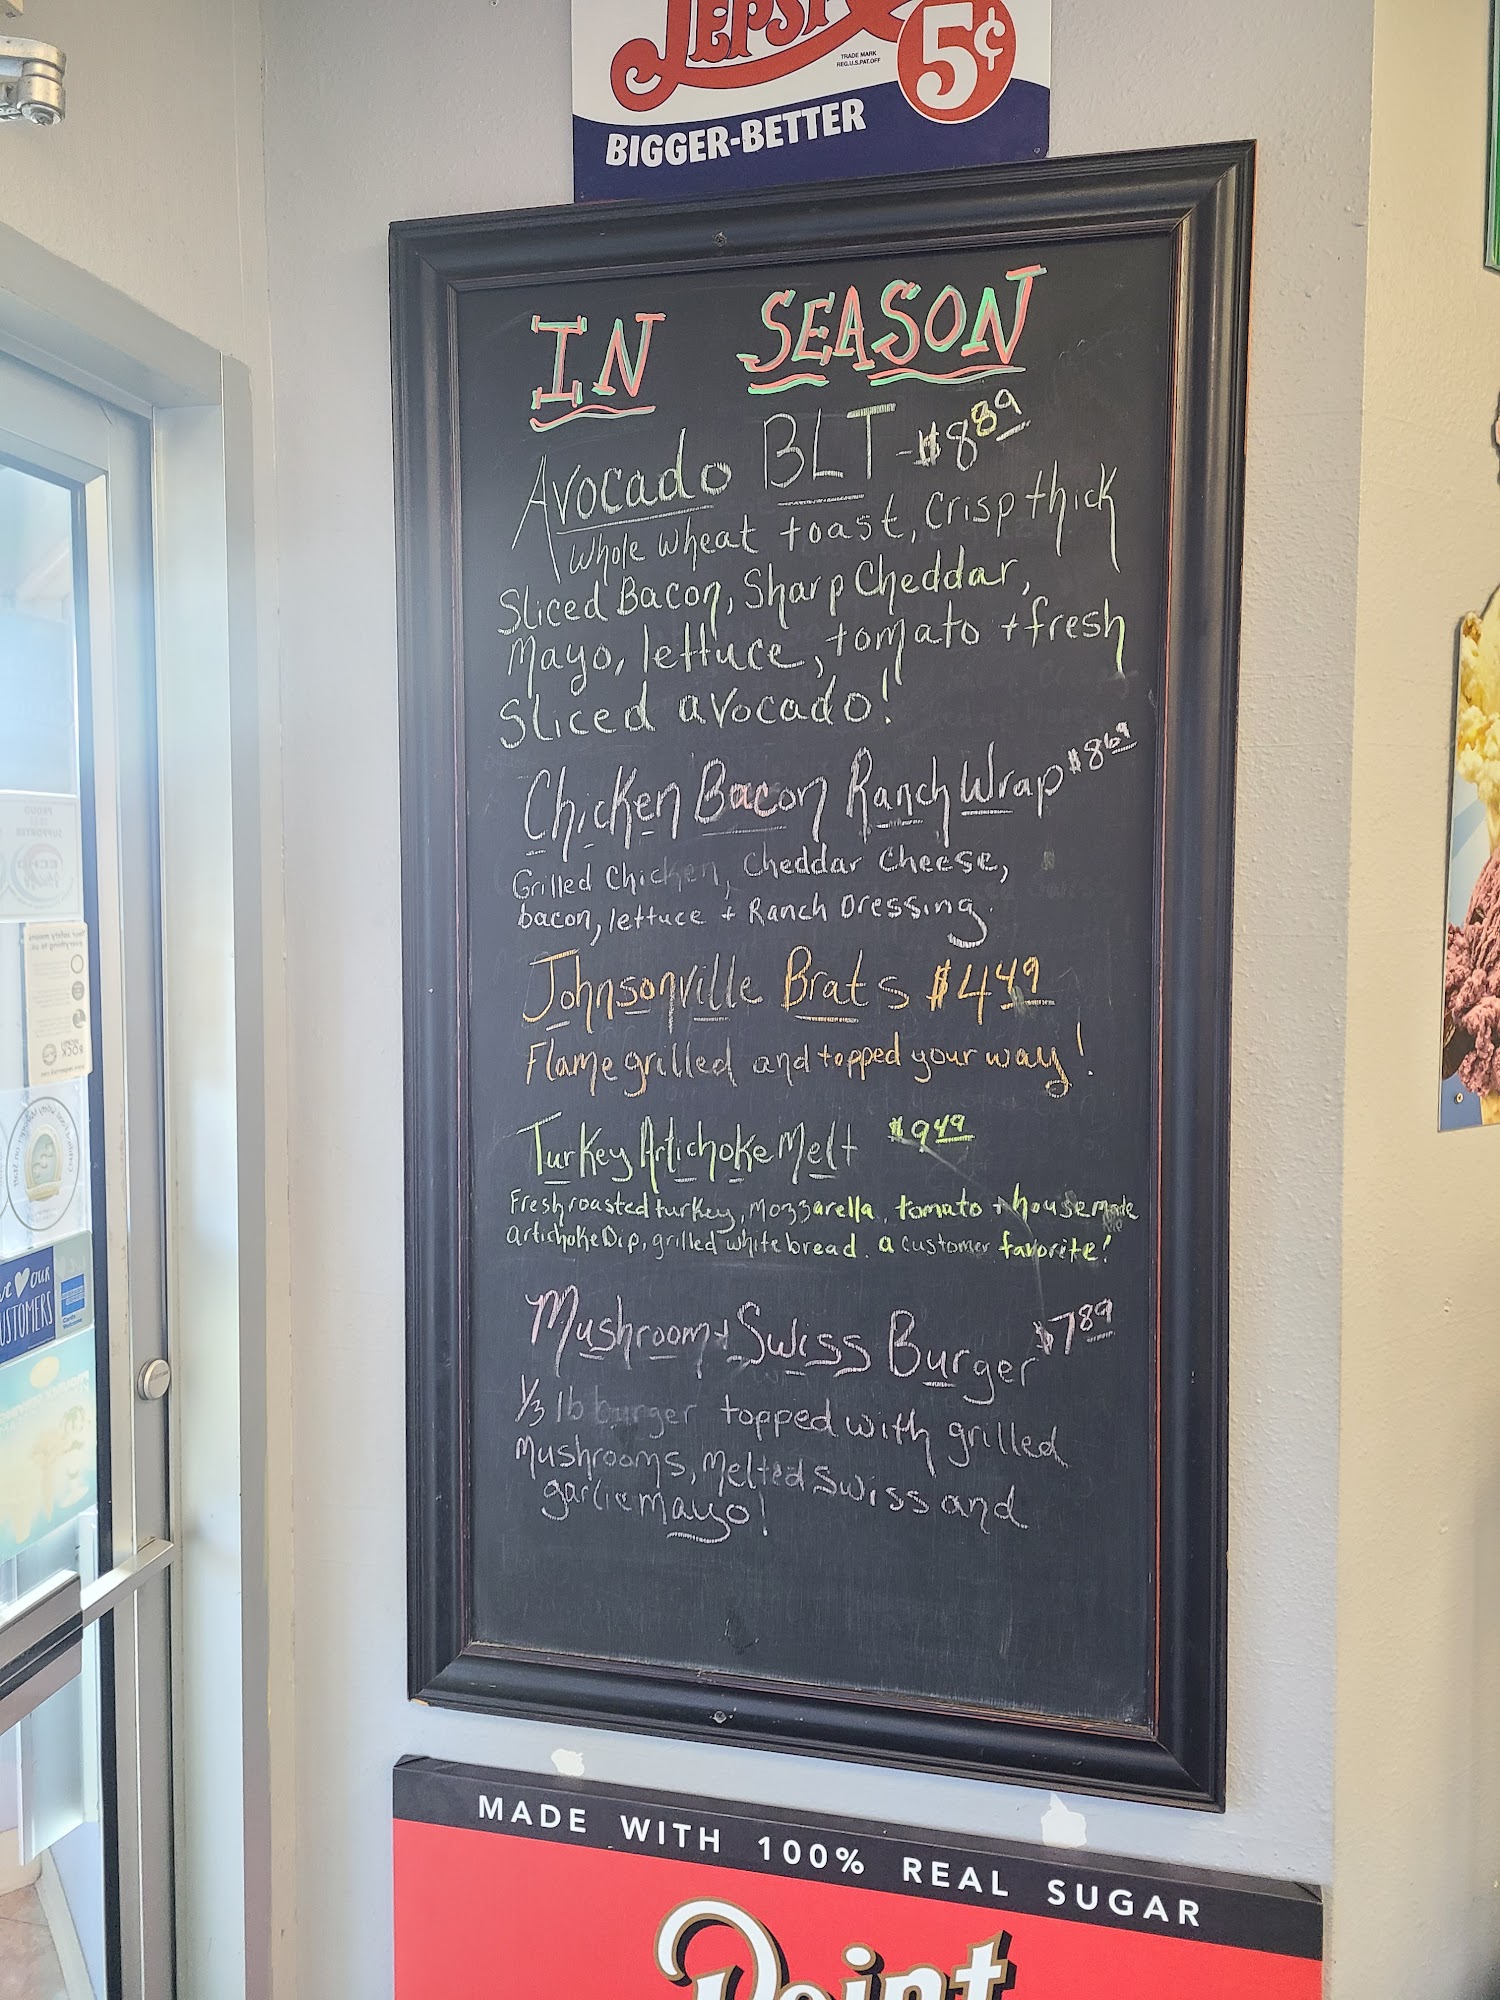 PEPSI
5¢
TRADE MARK
REG.U.S.PAT.OFF
BIGGER-BETTER
IN SEASON
Avocado BLT - $8 89
Whole wheat toast, Crisp thick
Sliced Bacon, Sharp Cheddar,
Mayo, lettuce, tomato + fresh
Sliced avocado!
Chicken Bacon Ranch Wrap $8 69
Grilled Chicken, Cheddar Cheese,
bacon, lettuce + Ranch Dressing.
Johnsonville Brats $4 49
Flame grilled and topped your way!
Turkey Artichoke Melt $9 49
Fresh roasted turkey, Mozzarella, tomato + housemade
artichoke Dip, grilled white bread. a customer favorite!
Mushroom + Swiss Burger $7 89
1/3 lb burger topped with grilled
Mushrooms, Melted Swiss and
garlic mayo!
MADE WITH 100% REAL SUGAR
Point
OUR
CUSTOMERS